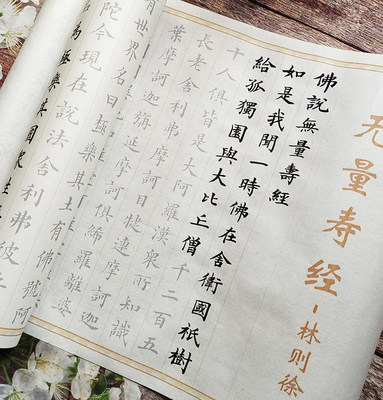 无量寿经-林则徐
佛說無量壽經
如是我聞一時佛在舍衛國祇樹
給孤獨園與大比丘僧千二百五
十人俱皆是大阿羅漢衆所知識
長老舍利弗摩訶目犍連摩訶迦
葉摩訶迦旃延摩訶俱絺羅離婆
有世界名曰極樂其土有佛號阿
陀今現在說法舍利弗彼土
為極樂其國衆生